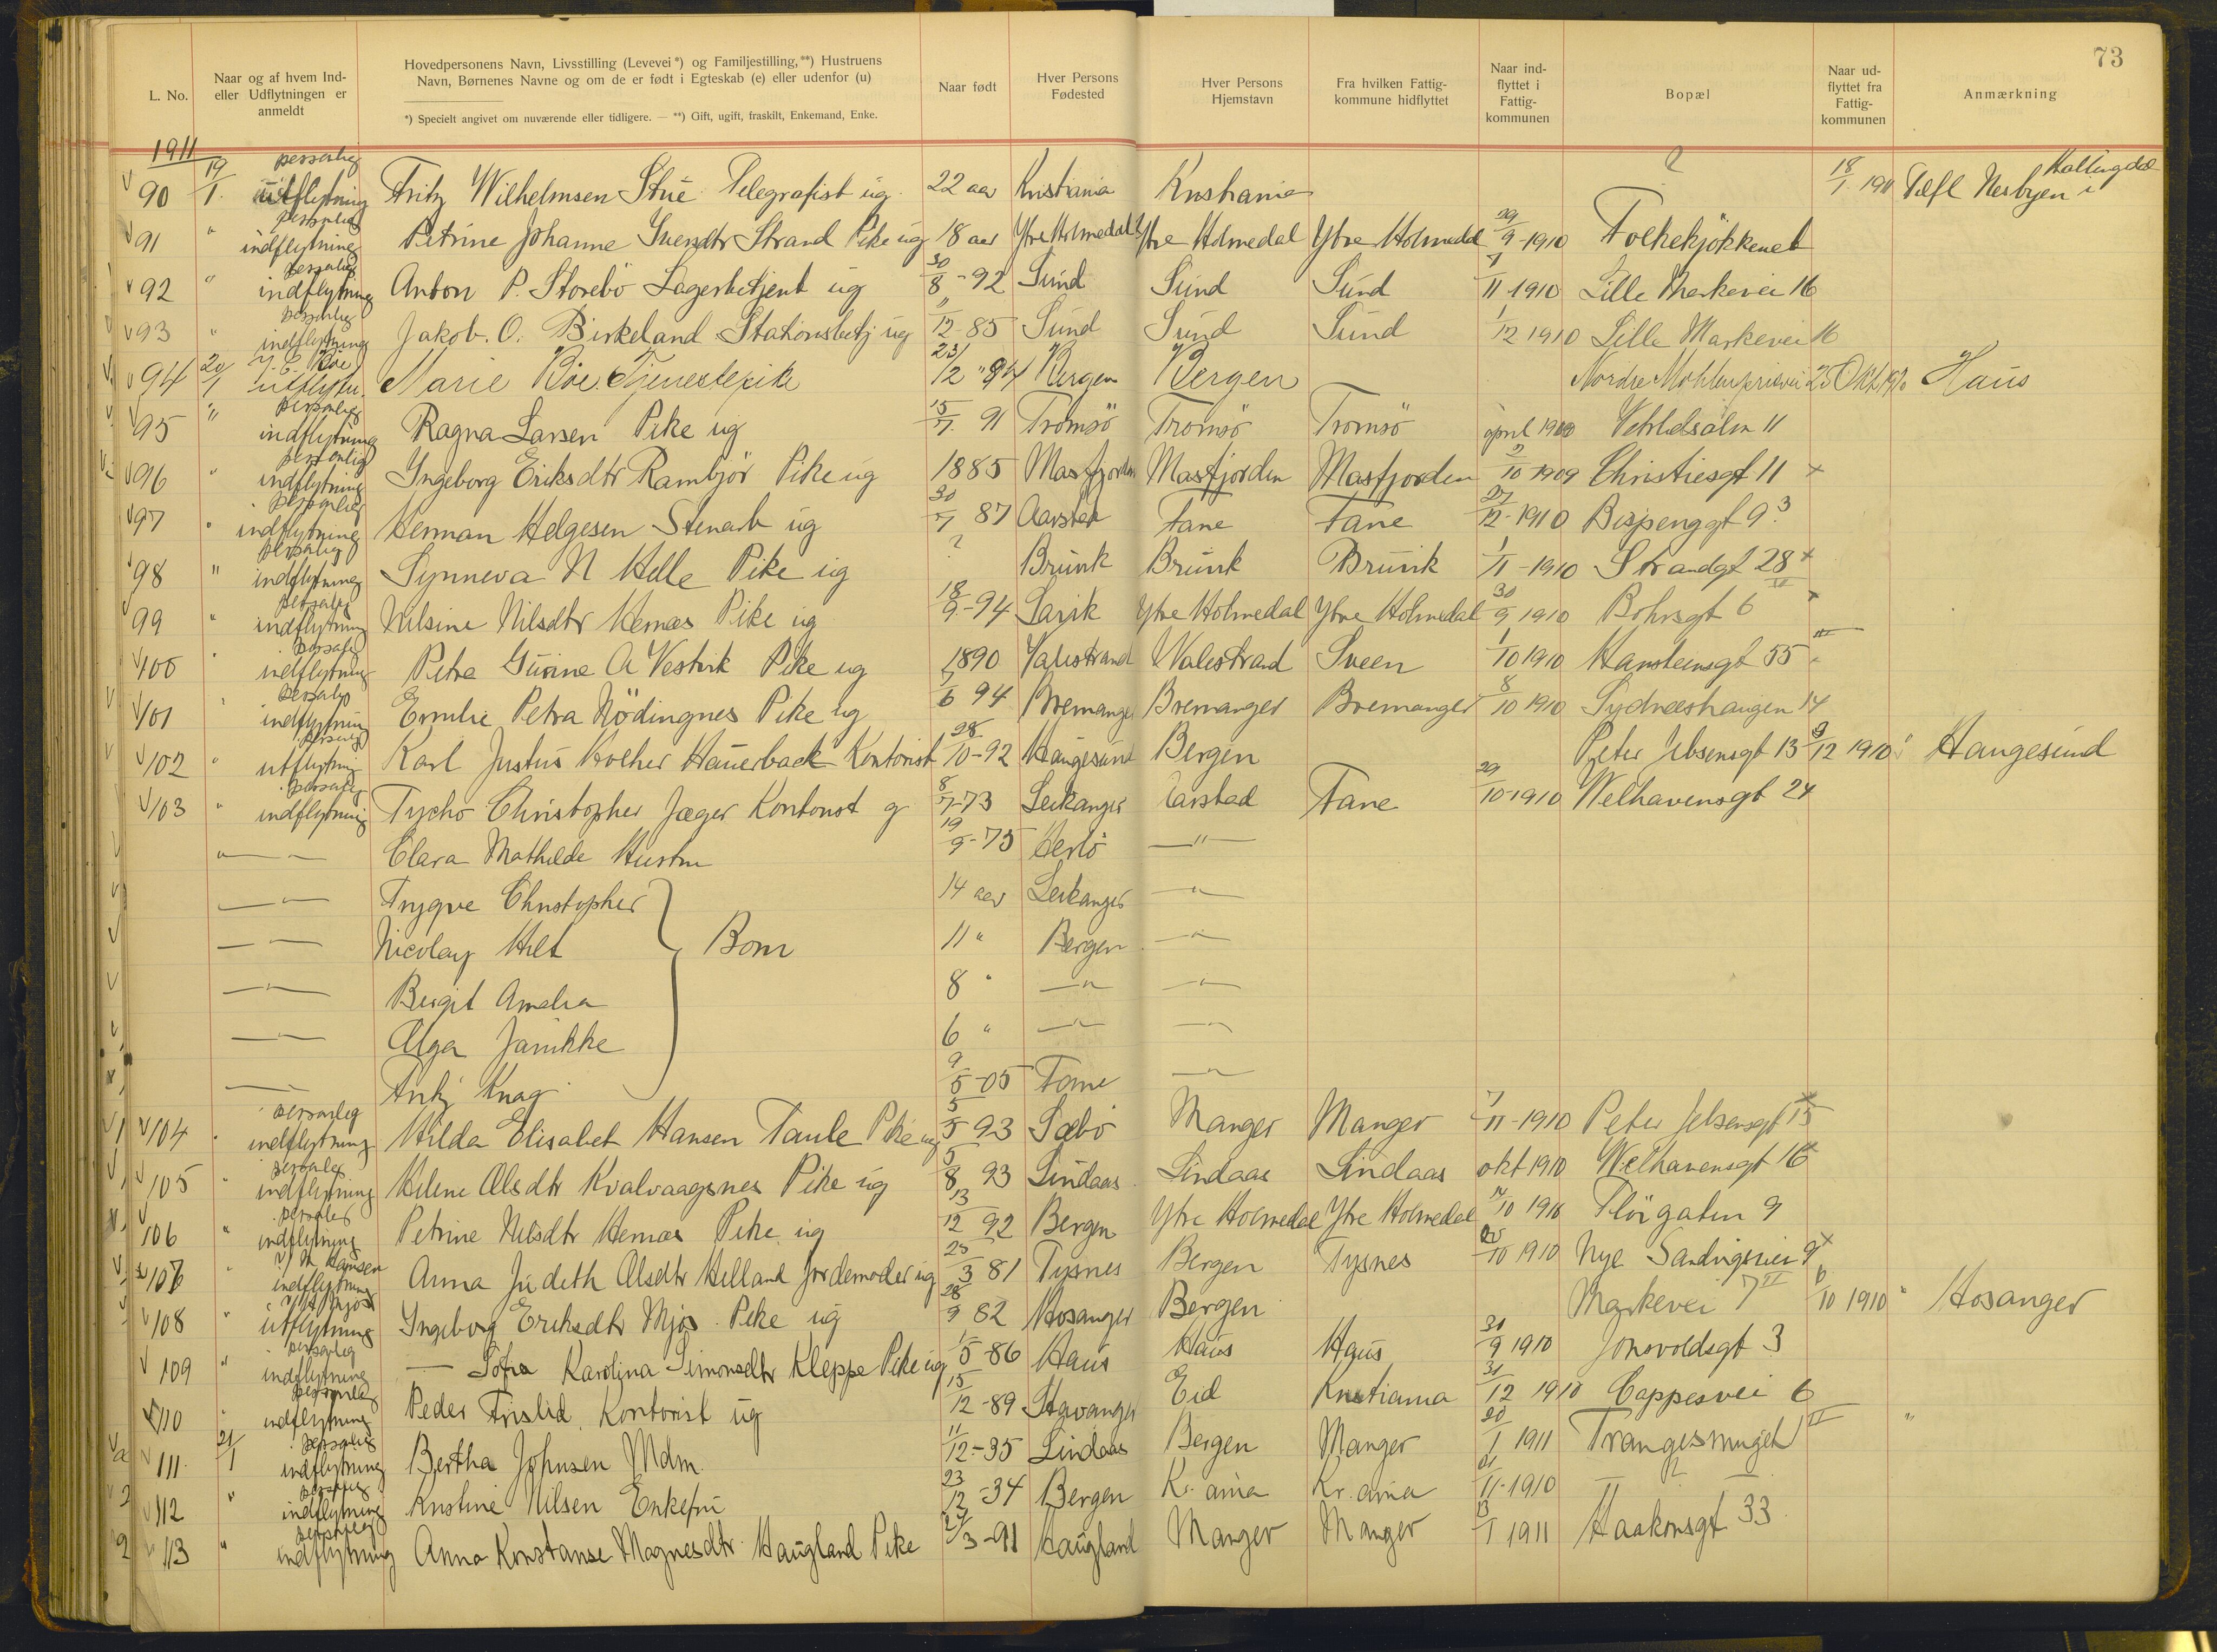 73
L. No.
Naar og af hvem Ind- eller Udflytningen er anmeldt
Hovedpersonens Navn, Livsstilling (Levevei*) og Familjestilling,**) Hustruens Navn, Børnenes Navne og om de er født i Egteskab (e) eller udenfor (u)
*) Specielt angivet om nuværende eller tidligere. — **) Gift, ugift, fraskilt, Enkemand, Enke.
Naar født
Hver Persons Fødested
Hver Persons Hjemstavn
Fra hvilken Fattig- kommune hidflyttet
Naar ind- flyttet i Fattig- kommunen
Bopæl
Naar ud- flyttet fra Fattig- kommunen
Anmærkning
1911
90 19/1. personlig utflytning Fritz Wilhelmsen Stue Telegrafist ug. 22 aar Kristiania Kristiania ? 18/1. 1911 Nesbyen i Hallingdal
91 " personlig indflytning Petrine Johanne Svendtr Strand Pike ug 18 aar Ytre Holmedal Ytre Holmedal Ytre Holmedal 29/9-1910 Folkekjökkenet
92 " personlig indflytning Anton P. Storebö Lagerbetjent ug 30/8-92 Sund Sund Sund 1/11 1910 Lille Markevei 16
93 " personlig indflytning Jakob. O. Birkeland Stationsbetj ug 11/12-85 Sund Sund Sund 1/12 1910 Lille Markevei 16
94 20/1 Böe utflytn. Marie Böe. Tjenestepike 23/12 "94 Bergen Bergen Nordre Mohlenprisvei 25 Okt 1910 Haus
95 " personlig indflytning Ragna Larsen Pike ug 15/7. 91 Tromsö Tromsö Tromsö april 11
96 " personlig indflytning Ingeborg Eriksdtr Rambjör Pike ug 1885 Masfjorden Masfjorden Masfjorden 2/10 1909 Christiesgt 11 ×
97 " personlig indflytning Herman Helgesen Stenarb ug 30/7 87 Aarstad Fane Fane 27/12-1910 Bispenggt 9 3
98 " personlig indflytning Synneva N Helle Pike ug ? Bruvik Bruvik Bruvik 1/11-1910 Strandgt 28 ×
99 " personlig indflytning Nilsine Nilsdtr Hernæs Pike ug 18/9-94 Ytre Holmedal Ytre Holmedal 30/9 1910 Bohrsgt 6 III
100 " personlig indflytning Petra Gurine A Vestvik Pike ug 1890 Valestrand Valestrand Sveen 1/10 1910 Hansteensgt 55 III
101 " personlig indflytning Emilie Petra Nödingnes Pike ug 7/6 94 Bremanger Bremanger Bremanger 8/10 1910 Sydneshaugen 14
102 " personlig utflytning Karl Justus Hauerback Kontorist 28/10-92 Haugesund Bergen Peter Jebsensgt 13 3/12 1910 Haugesund
103 " personlig indflytning Tycho Christopher Jæger Kontorist g 8/7-73 Leikanger Aarstad Fane 29/10-1910 Welhavensgt 24
— " — Clara Mathilde Hustru 19/9-75 Herlö — " —
— " — Trygve Christopher 14 aar Leikanger — " —
— " — Nicolay Hilt } Born 11 " Bergen — " —
— " — Birgit Amalia 8 " — " — — " —
— " — Olga Jannikke 6 " — " — — " —
— Fritz Knag 9/5-05 Fane — " —
104 " personlig indflytning Hilda Elisabet Hansen Taule Pike ug 5/5 93 Sæbö Manger Manger 1/11-1910 Peter Jebsensgt 15
105 " personlig indflytning Helene Olsdtr Kvalvaagsnes Pike ug 5/8 93 Lindaas Lindaas Lindaas okt 1910 Welhavensgt 16
106 " personlig indflytning Petrine Nilsdtr Hernæs Pike ug 13/12 92 Bergen Ytre Holmedal Ytre Holmedal 14/10 1910 Flöigaten 9
107 " v/ M Hansen indflytning Anna Judith Olsdtr Helland Jordemoder ug 25/3 81 Tysnes Bergen Tysnes 20/10 1910 Nye Sandvigsvei 9 ×
108 " v/ Mjös utflytning Ingeborg Eriksdtr Mjös. Pike ug 28/9 82 Hosanger Bergen Markevei 7 II 6/10 1910 " Hosanger
109 " personlig indflytning — Sofia Karolina Simonsdtr Kleppe Pike ug 15/5-86 Haus Haus Haus 30/9 1910 Jonsvoldsgt 3
110 " personlig indflytning Peder Frislid. Kontorist ug 15/12-89 Stavanger Eid Kristiania 31/12 1910 Cappesvei 6
111. 21/1 personlig indflytning Bertha Johnsen Mdm. 11/12-35 Lindaas Bergen Manger 20/1 1911 Trangesmuget II "
112 " personlig indflytning Kristine Nilsen Enkefru 23/12-34 Bergen Kr. ania Kr. ania 11-1910 — ? —
113 " personlig indflytning Anna Konstanse Magnesdtr. Haugland Pike 27/3-91 Haugland Manger Manger 13/1 1911 Haakonsgt 33